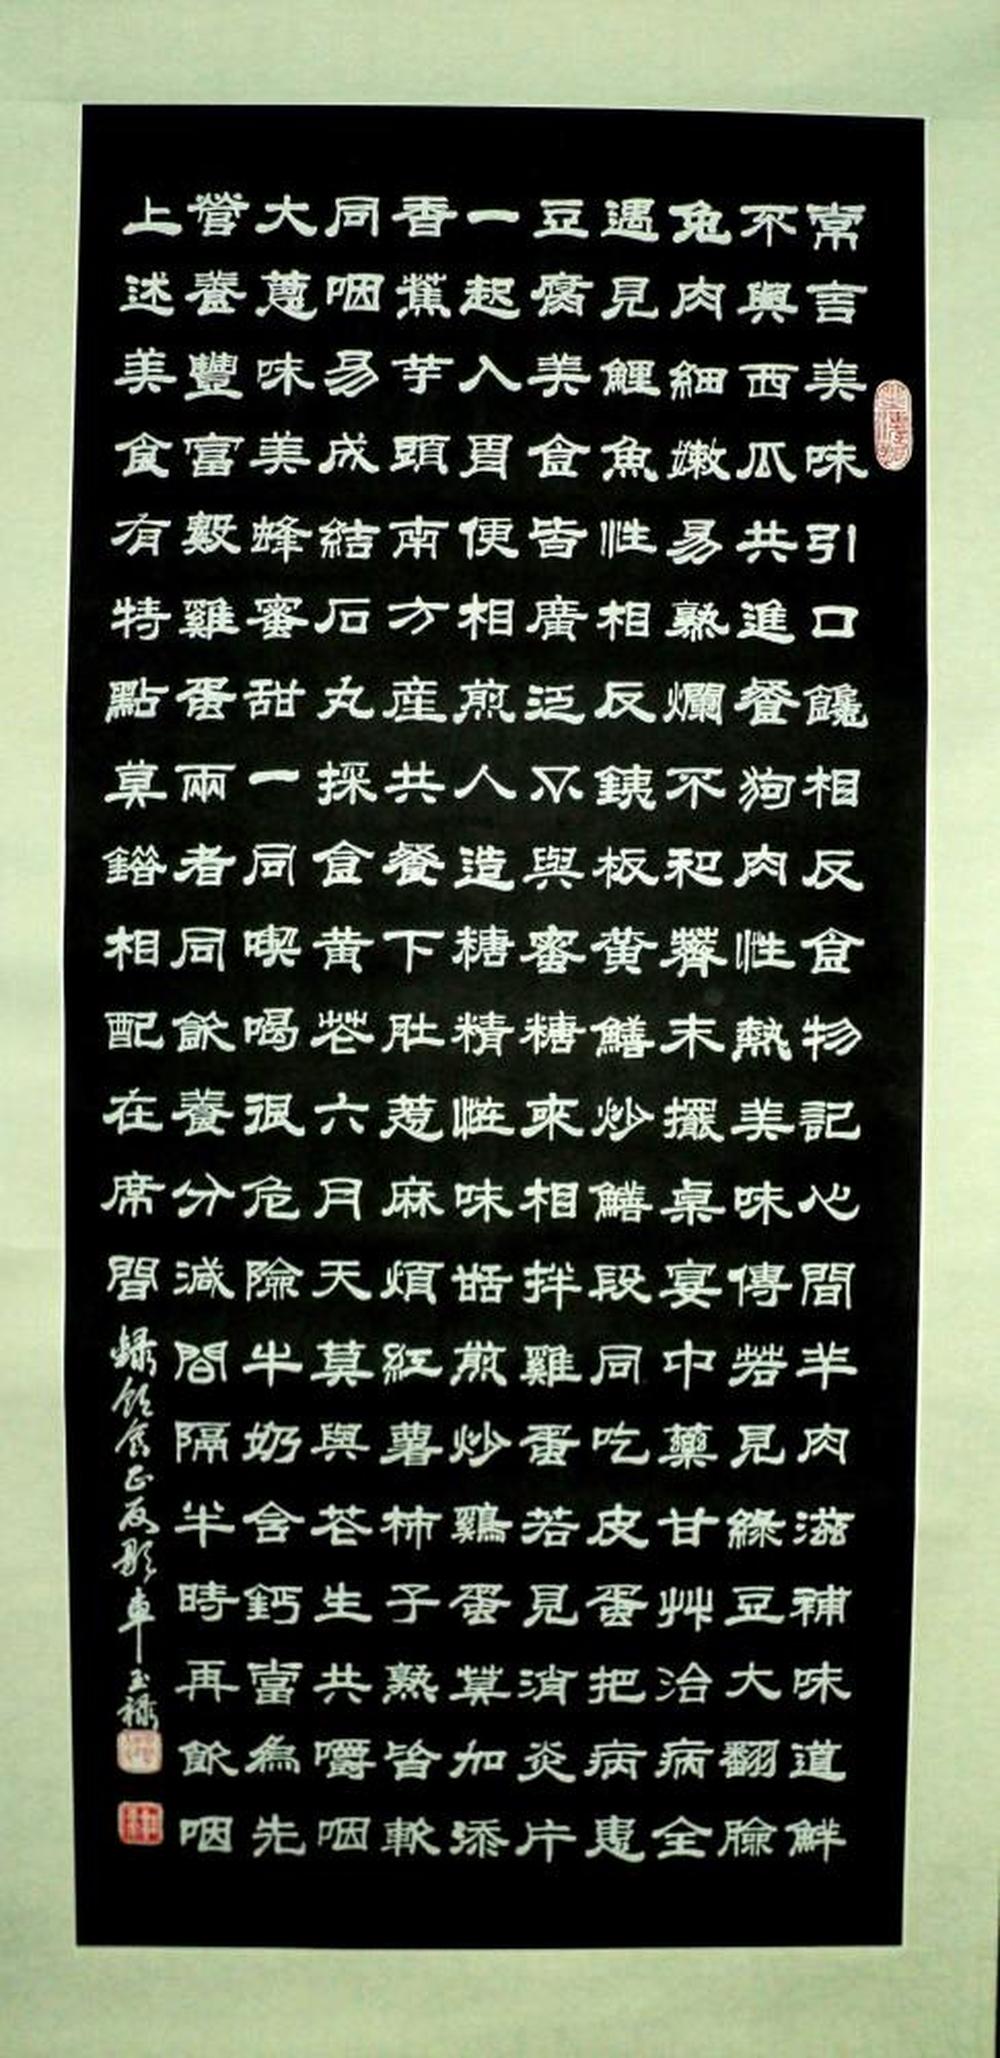 常言美味引口饞相反食物記心間羊肉滋補味道鮮
不與西瓜共進餐狗肉性熱美味傳若見綠豆大翻臉
兔肉細嫩易熟爛不和薺末擺桌宴中藥甘艸治病全
遇見鯉魚性相反鐵板黄鱔炒鱔段同吃皮蛋把病患
豆腐美食皆廣泛不與蜜糖來相拌雞蛋若見消炎片
一起入胃便相煎人造糖精怪味甜煎炒鷄蛋莫加添
香蕉芋頭南方産共餐下肚惹麻煩紅薯柿子熟皆軟
同咽易成結石丸採食黄花六月天莫與花生共嚼咽
大蔥味美蜂蜜甜一同喫喝很危險牛奶含鈣當為先
營養豐富數雞蛋兩者同飲養分減間隔半時再飲咽
上述美食有特點莫錯相配在席間
錄飲食正反歌車玉祿